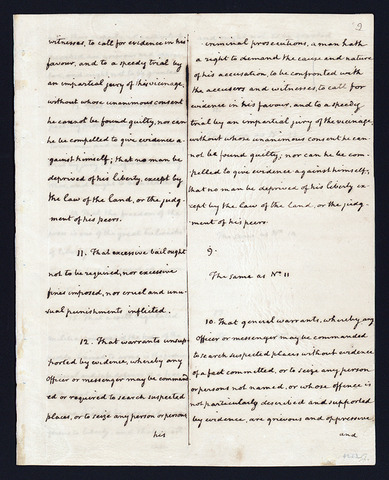 witnesses, to call for evidence in his
favour, and to a speedy trial by
an impartial jury of his vicinage,
without whose unanimous consent
he cannot be found guilty, nor can
he be compelled to give evidence a-
gainst himself; that no man be
deprived of his liberty, except by
the law of the land, or the judg-
ment of his peers.
11. That excessive bail ought
not to be required, nor excessive
fines imposed, nor cruel and unu-
sual punishments inflicted.
12. That warrants unsup-
ported by evidence, whereby any
Officer or messenger may be command
ed or required to search suspected
places, or to seize any person or persons
his
9
criminal prosecutions, a man hath
a right to demand the cause and nature
of his accusation, to be confronted with
the accusers and witnesses, to call for
evidence in his favour, and to a speedy
trial by an impartial jury of the vicinage,
without whose unanimous consent he can-
not be found guilty; nor can he be com-
pelled to give evidence against himself;
that no man be deprived of his liberty ex-
cept by the law of the land, or the judg-
ment of his peers.
9.
The same as No 11
10. That general warrants, whereby any
Officer or messenger may be commanded
to search suspected places without evidence
of a fact committed, or to seize any person
or persons not named, or whose offence is
not particularly described and supported
by evidence, are grievous and oppressive
and